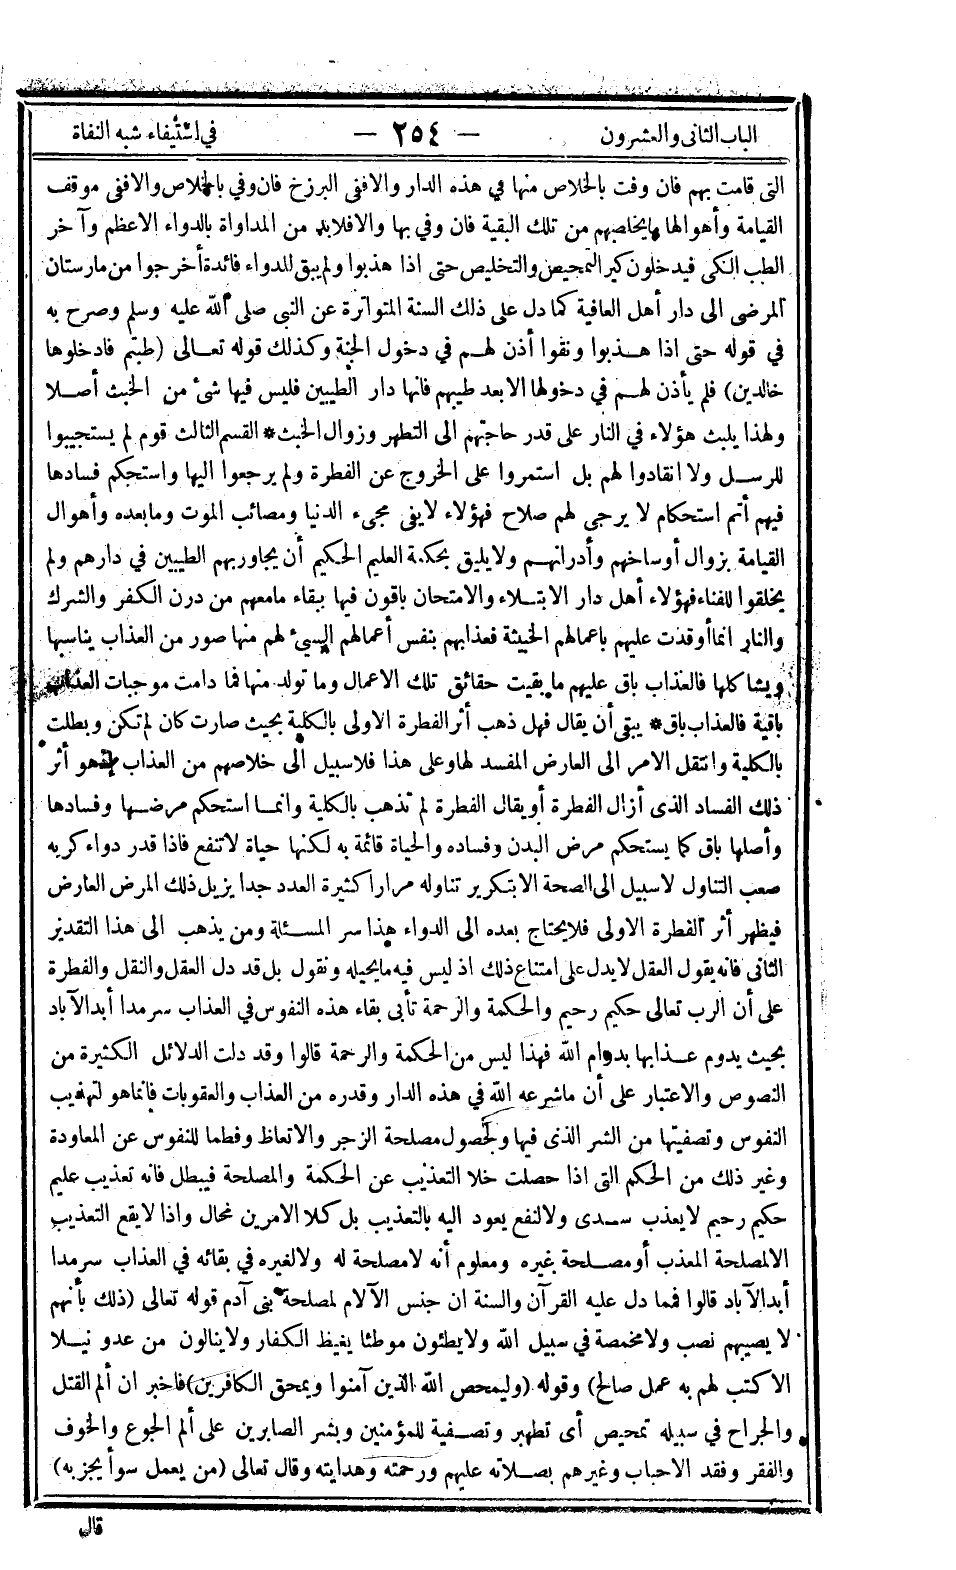 الباب الثانى والعشرون - ٢٥٤ - في استيفاء شبه النفاة
التى قامت بهم فان وفت بالخلاص منها في هذه الدار والافنى البرزخ فان وفي بالخلاص والافنى موقف
القيامة وأهوالها ما يخلصهم من تلك البقية فان وفي بها والا فلابد من المداواة بالدواء الاعظم وآخر
الطب الكى فيدخلون كير التمحيص والتخليص حتى اذا هذبوا ولم يبق للدواء فائدة أخرجوا من مارستان
المرضى الى دار أهل العافية كما دل على ذلك السنة المتواترة عن النبى صلى الله عليه وسلم وصرح به
في قوله حتى اذا هـذبوا ونقوا أذن لهـم في دخول الجنة وكذلك قوله تعـالى (طبتم فادخلوها
خالدين) فلم يأذن لهـم في دخولها الا بعد طيبهم فانها دار الطيبين فليس فيها شئ من الخبث أصـلا
ولهذا يلبث هؤلاء في النار على قدر حاجتهم الى التطهر وزوال الخبث * القسم الثالث قوم لم يستجيبوا
للرسـل ولا انقادوا لهم بل استمروا على الخروج عن الفطرة ولم يرجعوا اليها واستحكم فسادها
فيهم أتم استحكام لا يرجى لهم صلاح فهؤلاء لايفى مجىء الدنيا ومصائب الموت وما بعده وأهوال
القيامة بزوال أوساخهم وأدرانهـم ولا يليق بحكمة العليم الحكيم أن يجاور بهم الطيبين في دارهم ولم
يخلقوا للفناء فهؤلاء أهل دار الابتـلاء والامتحان باقون فيها ببقاء مامعهم من درن الكفر والشرك
والنار انما أوقدت عليهم باعمالهم الخبيثة فعذابهم بنفس أعمالهم السيئ لهم منها صور من العذاب يناسبها
ويشاكلها فالعذاب باق عليهم ما بقيت حقائق تلك الاعمال وما تولد منها فما دامت موجبات العذاب
باقية فالعذاب باق * يبقى أن يقال فهل ذهب أثر الفطرة الاولى بالكلية بحيث صارت كان لم تكن وبطلت
بالكلية وانتقل الامر الى العارض المفسد لها وعلى هذا فلا سبيل الى خلاصهم من العذاب اذهو أثر
ذلك الفساد الذى أزال الفطرة أو يقال الفطرة لم تذهب بالكلية وانمـا استحكم مرضـها وفسادها
وأصلها باق كما يستحكم مرض البدن وفساده والحياة قائمة به لكنها حياة لاتنفع فاذا قدر دواء كريه
صعب التناول لا سبيل الى الصحة الا بتكرير تناوله مرارا كثيرة العدد جدا يزيل ذلك المرض العارض
فيظهر أثر الفطرة الاولى فلا يحتاج بعده الى الدواء هذا سر المسـئلة ومن يذهب الى هذا التقدير
الثانى فانه يقول العقل لا يدل على امتناع ذلك اذ ليس فيه ما يحيله ونقول بل قد دل العقل والنقل والفطرة
على أن الرب تعالى حكيم رحيم والحكمة والرحمة تأبى بقاء هذه النفوس في العذاب سرمدا أبد الآباد
بحيث يدوم عـذابها بدوام الله فهذا ليس من الحكمة والرحمة قالوا وقد دلت الدلائل الكثيرة من
النصوص والاعتبار على أن ماشرعه الله في هذه الدار وقدره من العذاب والعقوبات فانما هو لتهذيب
النفوس وتصفيتها من الشر الذى فيها ولحصول مصلحة الزجر والاتعاظ وفطما للنفوس عن المعاودة
وغير ذلك من الحكم التى اذا حصلت خلا التعذيب عن الحكمة والمصلحة فيبطل فانه تعذيب عليم
حكيم رحيم لا يعذب سـدى ولا لنفع يعود اليه بالتعذيب بل كلا الامرين محال واذا لا يقع التعذيب
الا لمصلحة المعذب أو مصـلحة غيره ومعلوم أنه لا مصلحة له ولا لغيره في بقائه في العذاب سرمدا
أبد الآباد قالوا فما دل عليه القرآن والسنة ان جنس الآلام لمصلحة بنى آدم قوله تعالى (ذلك بأنهم
لا يصيبهم نصب ولا مخمصة في سبيل الله ولا يطئون موطئا يغيظ الكفار ولا ينالون من عدو نيـلا
الا كتب لهم به عمل صالح) وقوله (وليمحص الله الذين آمنوا ويمحق الكافرين) فاخبر ان ألم القتل
والجراح في سبيله تمحيص أى تطهير وتصـفية للمؤمنين وبشر الصابرين على ألم الجوع والخوف
والفقر وفقد الاحباب وغيرهم بصـلاته عليهم ورحمته وهدايته وقال تعالى (من يعمل سوأ يجز به)
قال